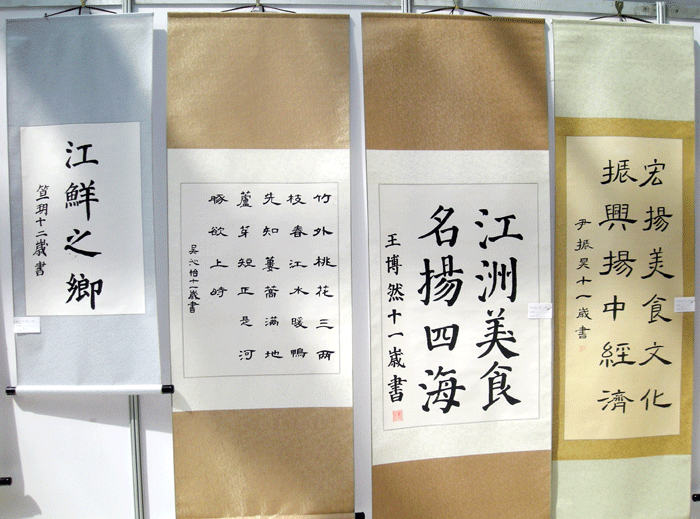 江鮮之鄉
笪玥十二歲書
竹外桃花三兩
枝春江水暖鴨
先知蔞蒿滿地
蘆芽短正是河
豚欲上時
吴心怡十一歲書
江洲美食
名揚四海
王博然十一歲書
宏揚美食文化
振興揚中經濟
尹振昊十一歲書